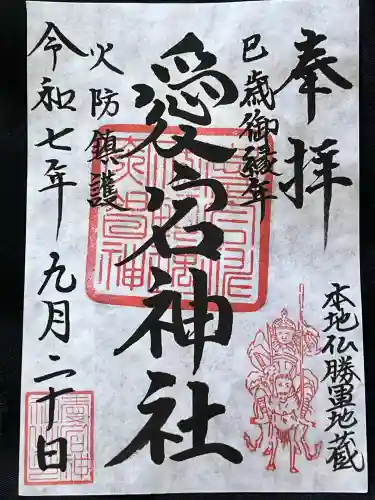 奉拝
本地仏勝軍地蔵
巳歳御縁年
愛宕神社
火防鎮護
令和七年九月二十日